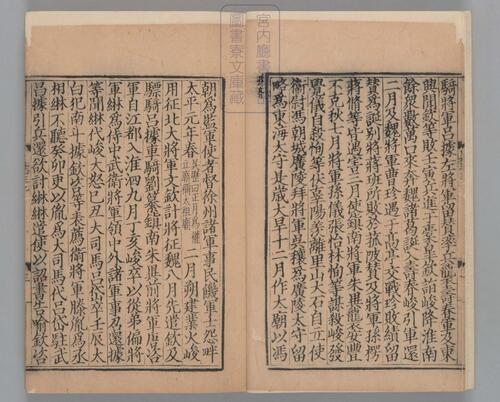 圖書寮文庫藏
騎將軍呂據左將軍留贊率兵襲壽春軍及東
興聞欽等敗壬寅兵進于橐皋欽詣峻降淮南
餘衆數萬口來奔魏諸葛誕入壽春峻引軍還
二月及魏將軍曹珍遇于高亭交戰珍敗績留
贊爲誕別將蔣班所敗于菰陂贊及將軍孫楞
蔣脩等皆遇害三月使鎮南將軍朱異襲安豐
不克秋七月將軍孫儀張怡林恂等謀殺峻發
覺儀自殺恂等伏辜陽羨離里山大石自立使
衛尉馮朝城廣陵拜將軍吳穰爲廣陵太守留
略爲東海太守是歲大旱十二月作太廟以馮
朝爲監軍使者督徐州諸軍事民饑軍士怨畔
太平元年春吳歷曰正月爲權立廟稱太祖廟二月朔建業火峻
用征北大將軍文欽計將征魏八月先遣欽及
驃騎呂據車騎劉纂鎮南朱異前將軍唐咨
軍自江都入淮泗九月丁亥峻卒以從弟偏將
軍綝爲侍中武衛將軍領中外諸軍事召還據
等聞綝代峻大怒己丑大司馬呂岱卒壬辰太
白犯南斗據欽咨等表薦衛將軍滕胤爲丞
相綝不聽癸卯更以胤爲大司馬代呂岱駐武
昌據引兵還欲討綝綝遣使以詔書告喻欽咨